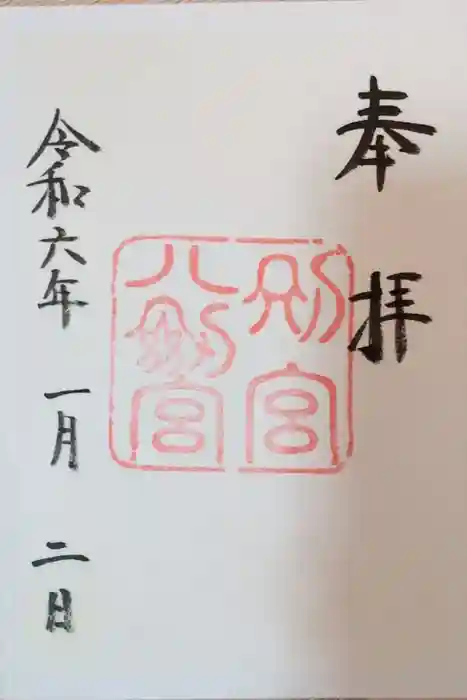 奉拝
別宮
八剣宮
令和六年一月二日